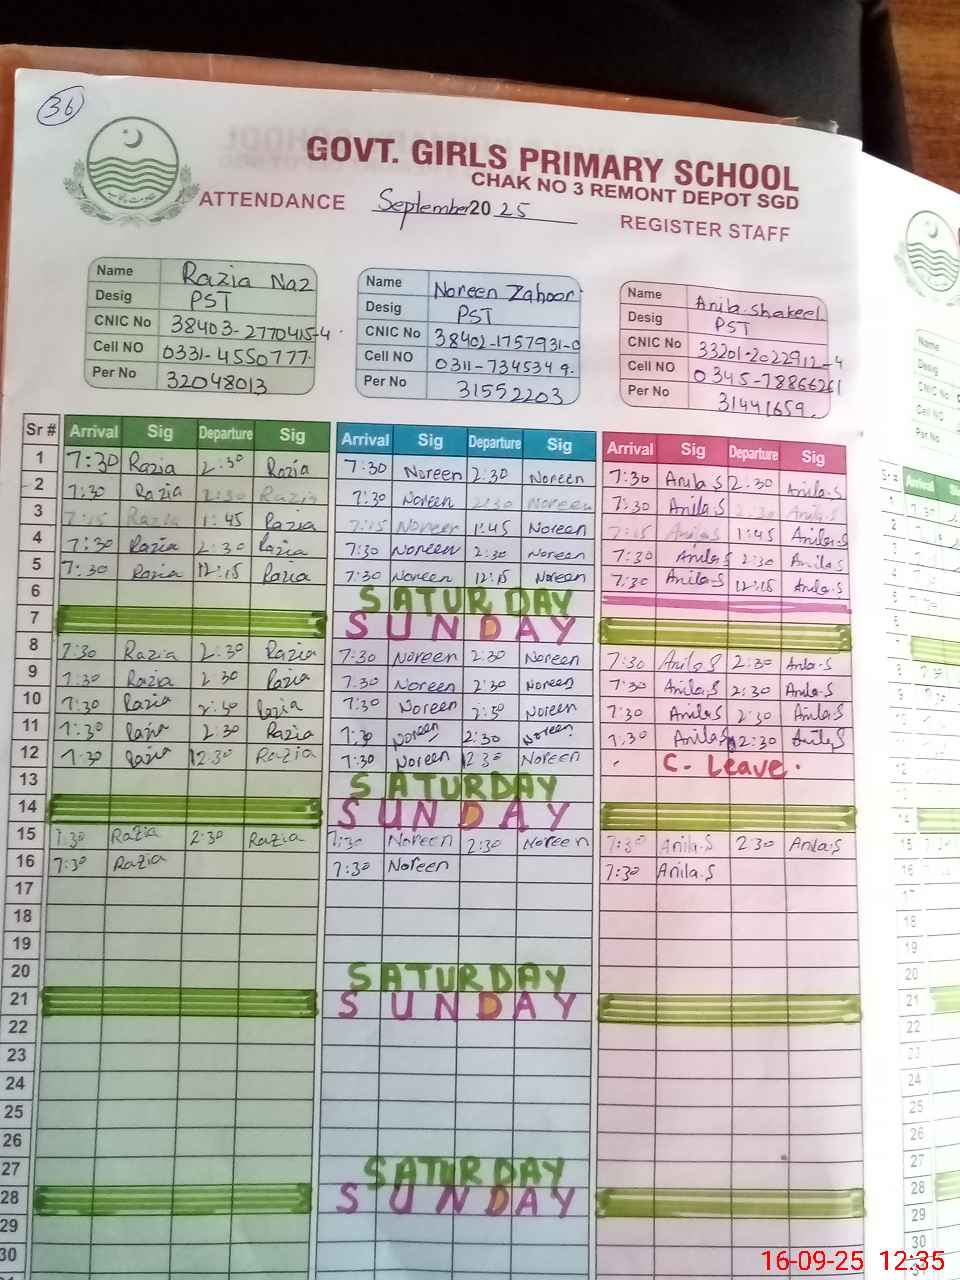 36
GOVT. GIRLS PRIMARY SCHOOL
CHAK NO 3 REMONT DEPOT SGD
ATTENDANCE September 2025 REGISTER STAFF
Name Razia Naz
Desig PST
CNIC No 38403-2770415-4
Cell NO 0331-4550777
Per No 32048013
Name Noreen Zahoor
Desig PST
CNIC No 38402-1757931-0
Cell NO 0311-7345349
Per No 31552203
Name Anila Shakeel
Desig PST
CNIC No 33201-2022912-4
Cell NO 0345-78866261
Per No 31441659
Sr # Arrival Sig Departure Sig Arrival Sig Departure Sig Arrival Sig Departure Sig
1 7:30 Razia 2:30 Razia 7:30 Noreen 2:30 Noreen 7:30 Anila S 2:30 Anila.S
2 7:30 Razia 2:30 Razia 7:30 Noreen 2:30 Noreen 7:30 Anila.S 2:30 Anila.S
3 7:15 Razia 1:45 Razia 7:15 Noreen 1:45 Noreen 7:15 Anila S 1:45 Anila.S
4 7:30 Razia 2:30 Razia 7:30 Noreen 2:30 Noreen 7:30 Anila S 2:30 Anila S
5 7:30 Razia 12:15 Razia 7:30 Noreen 12:15 Noreen 7:30 Anila-S 12:15 Anila.S
6 SATURDAY
7 SUNDAY
8 7:30 Razia 2:30 Razia 7:30 Noreen 2:30 Noreen 7:30 Anila S 2:30 Anila-S
9 7:30 Razia 2:30 Razia 7:30 Noreen 2:30 Noreen 7:30 Anila.S 2:30 Anila-S
10 7:30 Razia 2:30 Razia 7:30 Noreen 2:30 Noreen 7:30 Anila S 2:30 Anila S
11 7:30 Razia 2:30 Razia 7:30 Noreen 2:30 Noreen 7:30 Anila S 2:30 Anila S
12 7:30 Razia 12:30 Razia 7:30 Noreen 12:30 Noreen C- Leave
13 SATURDAY
14 SUNDAY
15 7:30 Razia 2:30 Razia 7:30 Noreen 2:30 Noreen 7:30 Anila.S 2:30 Anila.S
16 7:30 Razia 7:30 Noreen 7:30 Anila.S
17
18
19
20 SATURDAY
21 SUNDAY
22
23
24
25
26
27 SATURDAY
28 SUNDAY
29
30
16-09-25 12:35